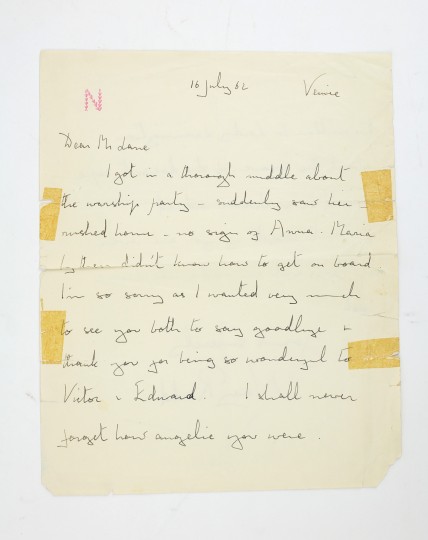 16 July 62 Venice
N
Dear Mr Lane
I got in a thorough muddle about
the warship party - suddenly saw her
rushed home - no sign of Anna-Maria
by then didn't know how to get on board
I'm so sorry as I wanted very much
to see you both to say goodbye &
thank you for being so wonderful to
Victor & Edward. I shall never
forget how angelic you were.